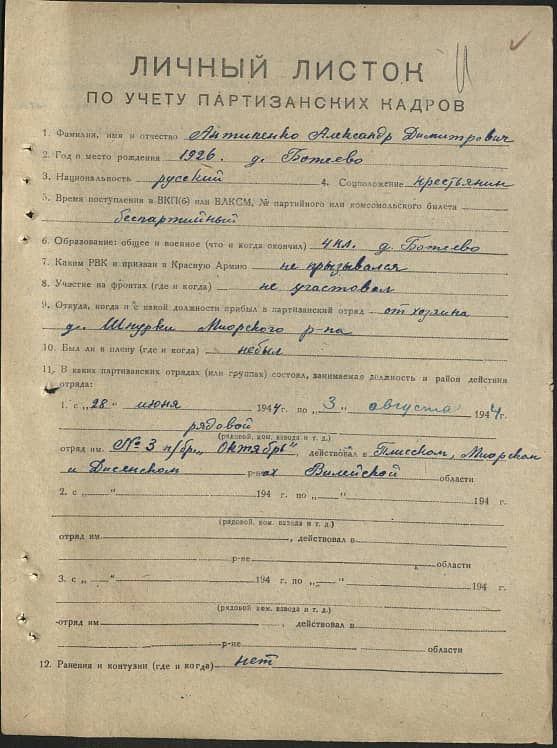 ЛИЧНЫЙ ЛИСТОК
ПО УЧЕТУ ПАРТИЗАНСКИХ КАДРОВ
1. Фамилия, имя и отчество Антипенко Александр Димитрович
2. Год и место рождения 1926. д. Ботеево
3. Национальность русский 4. Соцположение крестьянин
5. Время поступления в ВКП(б) или ВЛКСМ, № партийного или комсомольского билета
беспартийный
6. Образование: общее и военное (что и когда окончил) 4 кл. д. Ботеево
7. Каким РВК и призван в Красную Армию не прызывался
8. Участие на фронтах (где и когда) не участовал
9. Откуда, когда и с какой должности прибыл в партизанский отряд от хозяина
д. Шнурки Миорского р-на
10. Был ли в плену (где и когда) небыл
11. В каких партизанских отрядах (или группах) состоял, занимаемая должность и район действия
отряда:
1. с „28" июня 1944 г. по „3" августа 1944 г.
рядовой
(рядовой, ком. взвода и т. д.)
отряд им. № 3 п/бр „Октябрь", действовал в Плисском, Миорском
и Дисенском р-нах Вилейской области
2. с „ " 194 г. по „ " 194 г.
(рядовой, ком. взвода и т. д.)
отряд им , действовал в
р-не области
3. с „ " 194 г. по „ " 194 г.
(рядовой ком. взвода и т. д.)
отряд им , действовал в
р-не области
12. Ранения и контузии (где и когда) нет